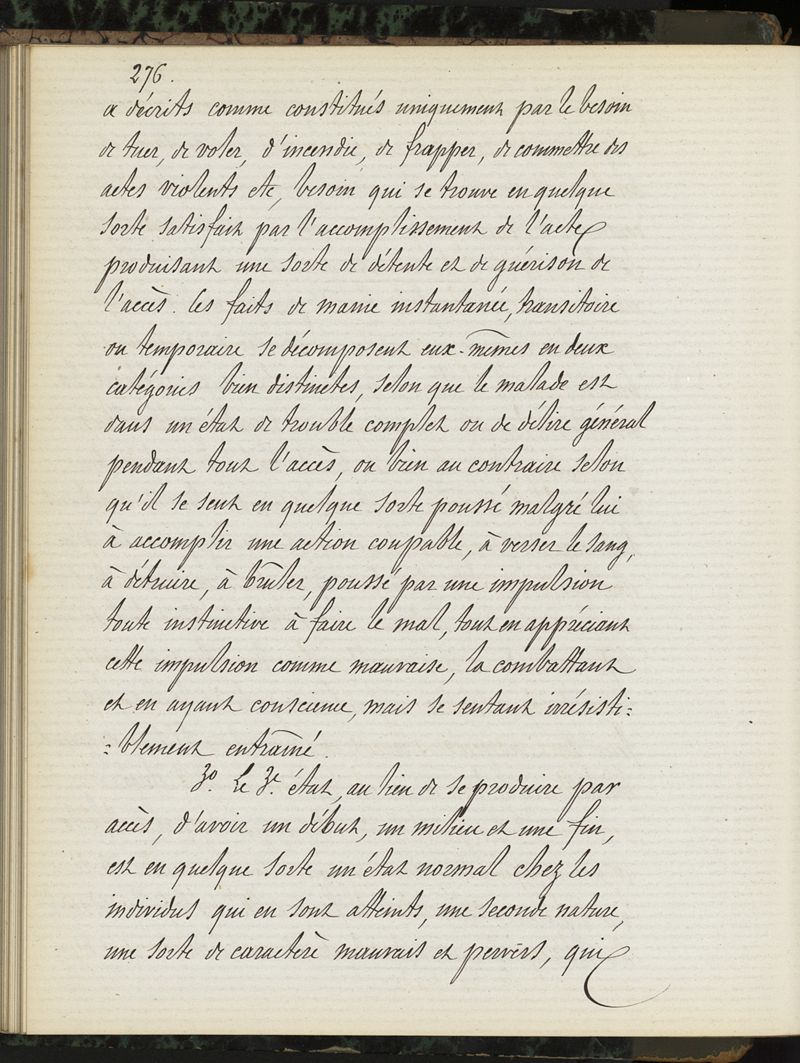 276.
& décrits comme constitués uniquement par le besoin
de tuer, de voler, d'incendie, de frapper, de commettre des
actes violents etc, besoin qui se trouve en quelque
sorte satisfait par l'accomplissement de l'acte
produisant une sorte de détente et de guérison de
l'accès. Ces faits de manie instantanée, transitoire
ou temporaire se décomposent eux-mêmes en deux
catégories bien distinctes, selon que le malade est
dans un état de trouble complet ou de délire général
pendant tout l'accès, ou bien au contraire selon
qu'il se sent en quelque sorte poussé malgré lui
à accomplir une action coupable, à verser le sang,
à détruire, à brûler, poussé par une impulsion
toute instinctive à faire le mal, tout en appréciant
cette impulsion comme mauvaise, la combattant
et en ayant conscience, mais se sentant irrésisti=
=blement entraîné.
3o. Le 3e. état, au lieu de se produire par
accès, d'avoir un début, un milieu et une fin,
est en quelque sorte un état normal chez les
individus qui en sont atteints, une seconde nature,
une sorte de caractère mauvais et pervers, qui